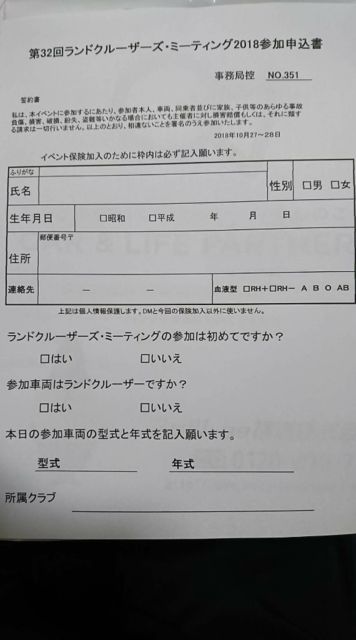 第32回ランドクルーザーズ・ミーティング2018参加申込書
事務局控 NO.351
誓約書
私は、本イベントに参加するにあたり、参加者本人、車両、同乗者並びに家族、子供等のあらゆる事故
負傷、損害、破損、紛失、盗難等いかなる場合においても主催者に対し損害賠償もしくは、それに類す
る請求は一切行いません。以上のとおり、相違ないことを署名のうえ参加いたします。
2018年10月27~28日
イベント保険加入のために枠内は必ず記入願います。
ふりがな
氏名 性別 □男 □女
生年月日 □昭和 □平成 年 月 日
郵便番号〒
住所
連絡先 － － 血液型 □RH+□RH－ A B O AB
上記は個人情報保護します。DMと今回の保険加入以外に使いません。
ランドクルーザーズ・ミーティングの参加は初めてですか?
□はい □いいえ
参加車両はランドクルーザーですか?
□はい □いいえ
本日の参加車両の型式と年式を記入願います。
型式 年式
所属クラブ